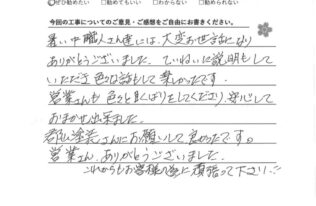 ぜひ勧めたい □勧めてもいい □わからない □勧めない
今回の工事についてのご意見・ご感想をご自由にお書きください。
暑い中職人さん達には、大変お世話になり
ありがとうございました。ていねいに説明もして
いただき色々な話もして楽しかったです。
営業さんも色々と気くばりをしてくださり、安心して
おまかせ出来ました。
塗装さんにお願いして良かったです。
営業さん、ありがとうございました。
これからもお客様の為に頑張って下さい。